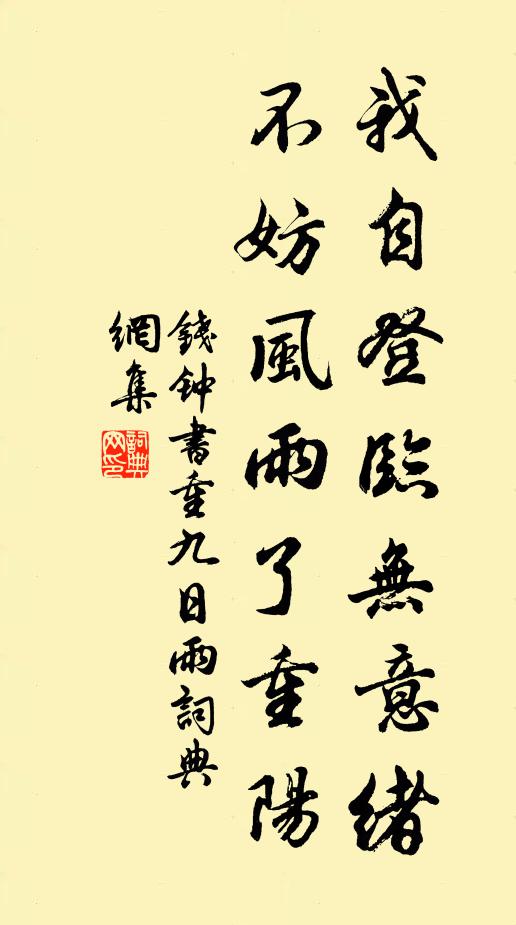 我自登臨無意緒
不妨風雨了重陽
錢钟書重九日雨詞典
網集
詞典
网印